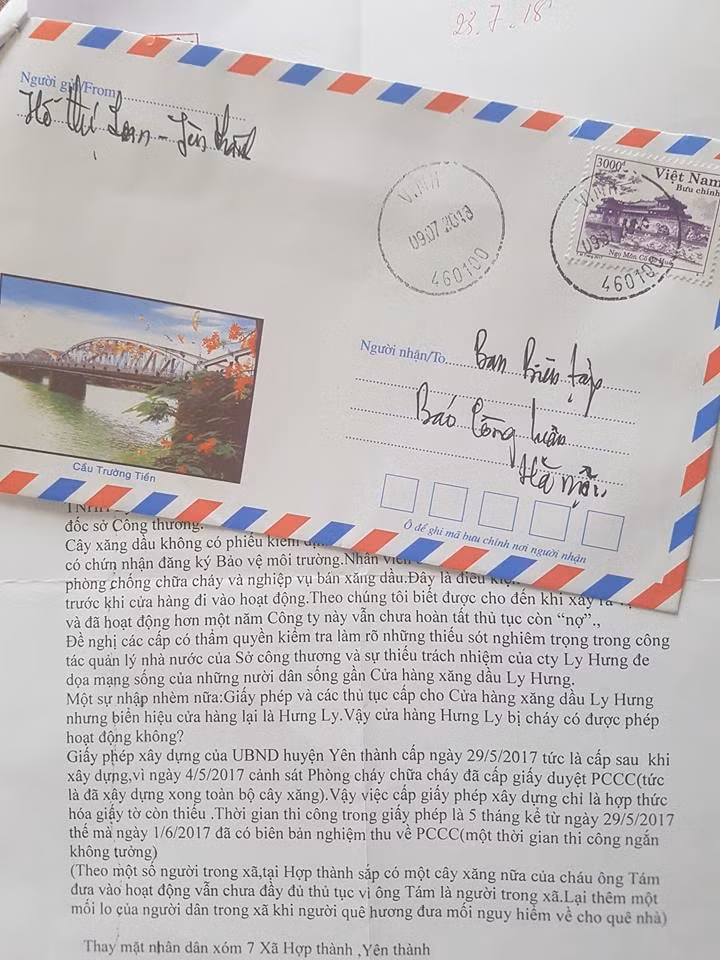 23.7.18
Người gửi/From
Hồ Thị Loan - Yên Thành
3000đ
Việt Nam
Bưu chính
Ngọ Môn Cố Đô Huế
09.07.2018
460100
46010
Cầu Trường Tiền
Người nhận/To
Ban biên tập
Báo Công luận
Hà Nội
Ô để ghi mã bưu chính nơi người nhận
TNHH
đốc sở Công thương.
Cây xăng dầu không có phiếu kiểm
có chứn nhận đăng ký Bảo vệ môi trường.Nhân viên
phòng chống chữa cháy và nghiệp vụ bán xăng dầu.Đây là điều kiện
trước khi cửa hàng đi vào hoạt động.Theo chúng tôi biết được cho đến khi xảy ra
và đã hoạt động hơn một năm Công ty này vẫn chưa hoàn tất thủ tục còn “nợ”.,
Đề nghị các cấp có thẩm quyền kiểm tra làm rõ những thiếu sót nghiêm trọng trong công
tác quản lý nhà nước của Sở công thương và sự thiếu trách nhiệm của cty Ly Hưng đe
dọa mạng sống của những nười dân sống gần Cửa hàng xăng dầu Ly Hưng.
Một sự nhập nhèm nữa:Giấy phép và các thủ tục cấp cho Cửa hàng xăng dầu Ly Hưng
nhưng biển hiệu cửa hàng lại là Hưng Ly.Vậy cửa hàng Hưng Ly bị cháy có được phép
hoạt động không?
Giấy phép xây dựng của UBND huyện Yên thành cấp ngày 29/5/2017 tức là cấp sau khi
xây dựng,vì ngày 4/5/2017 cảnh sát Phòng cháy chữa cháy đã cấp giấy duyệt PCCC(tức
là đã xây dựng xong toàn bộ cây xăng).Vậy việc cấp giấy phép xây dựng chỉ là hợp thức
hóa giấy tờ còn thiếu .Thời gian thi công trong giấy phép là 5 tháng kể từ ngày 29/5/2017
thế mà ngày 1/6/2017 đã có biên bản nghiệm thu về PCCC(một thời gian thi công ngắn
không tưởng)
(Theo một số người trong xã,tại Hợp thành sắp có một cây xăng nữa của cháu ông Tám
đưa vào hoạt động vẫn chưa đầy đủ thủ tục vì ông Tám là người trong xã.Lại thêm một
mối lo của người dân trong xã khi người quê hương đưa mối nguy hiểm về cho quê nhà)
Thay mặt nhân dân xóm 7 Xã Hợp thành ,Yên thành